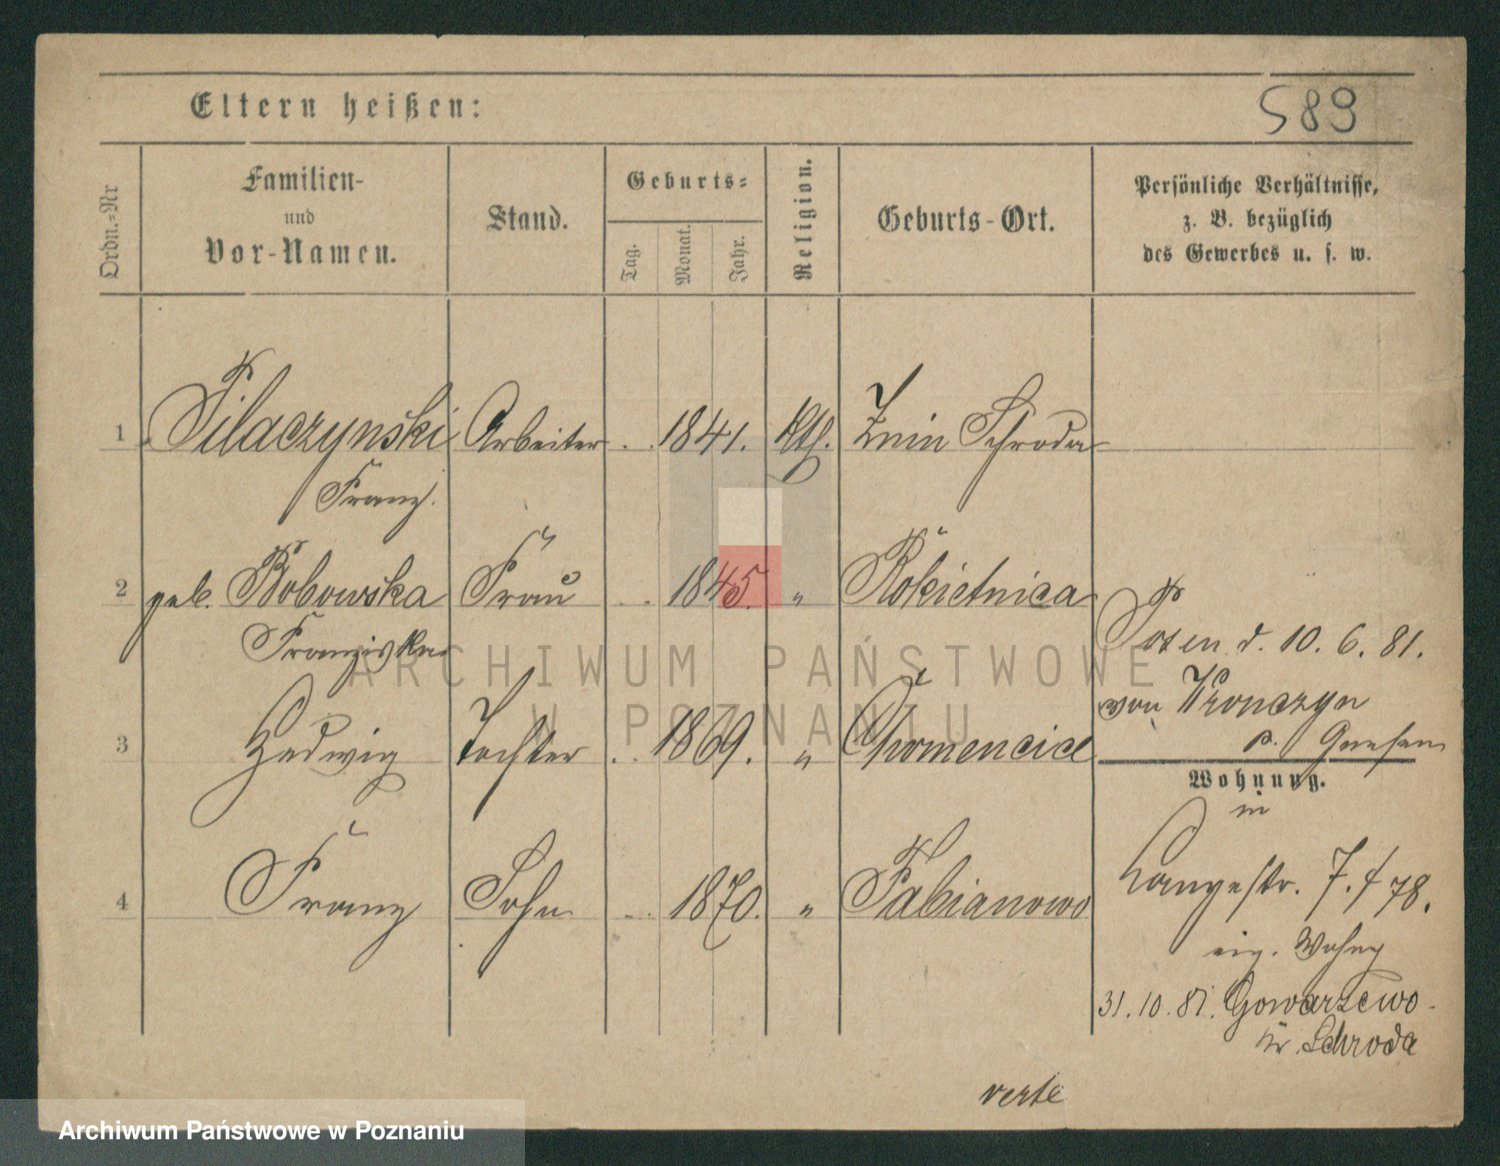 Eltern heißen:
589
Ordn.-Nr
Familien-
und
Vor-Namen.
Stand.
Geburts-
Tag.
Monat.
Jahr.
Religion.
Geburts-Ort.
Persönliche Verhältnisse,
z. B. bezüglich
des Gewerbes u. s. w.
1 Pilaczynski Arbeiter 1841. kth. Znin Schroda
Franz.
2 geb. Bobowska Frau 1845. " Rokietnica
Franziska
3 Hedwig Tochter 1869. " Chomencice
4 Franz Sohn 1870. " Fabianowo
Posen d. 10. 6. 81.
von Wronczyn
p. Gnesen
Wohnung.
in
Langestr. 7. f 78.
eig. Wohng
31. 10. 81. Gowarzewo
Kr. Schroda
verte
ARCHIWUM PAŃSTWOWE
W POZNANIU
Archiwum Państwowe w Poznaniu